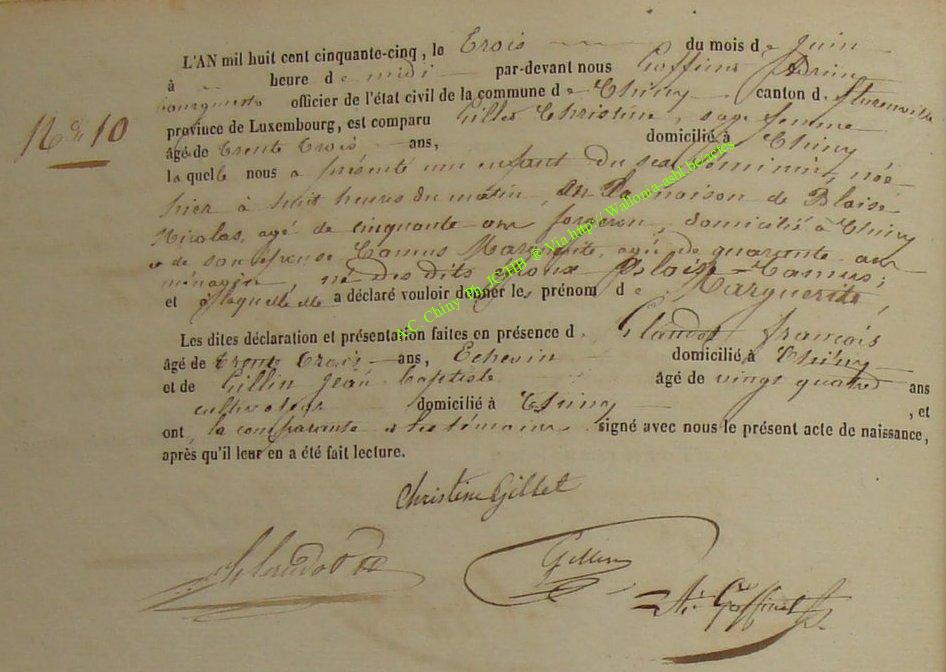 L'AN mil huit cent cinquante-cinq, le Trois du mois de juin
à heure de midi par-devant nous Goffinet Adrien
bourgmestre officier de l'état civil de la commune de Chiny canton de florenville
N° 10
province de Luxembourg, est comparu Gillet Christine, sage femme
âgé de trente trois ans, domicilié à Chiny
laquelle nous a présenté un enfant du sexe féminin, née
hier à huit heures du matin, en la maison de Blaise
Nicolas, agé de cinquante ans forgeron, domicilié à Chiny
et de son épouse Camus Marguerite, agée de quarante ans
ménagère, née desdits époux Blaise-Camus;
et à laquelle elle a déclaré vouloir donner les prénom de Marguerite
Les dites déclaration et présentation faites en présence d. Claudot françois
âgé de trente trois ans, Echevin domicilié à Chiny
et de Gillin Jean Baptiste âgé de vingt quatre ans
cultivateur domicilié à Chiny , et
ont, la comparante et les témoins signé avec nous le présent acte de naissance,
après qu'il leur en a été fait lecture.
Christine Gillet
Claudot
Gillin
Goffinet
A.C. Chiny Ph. JCMP ® Via http://Wallonia-asbl.be/actes